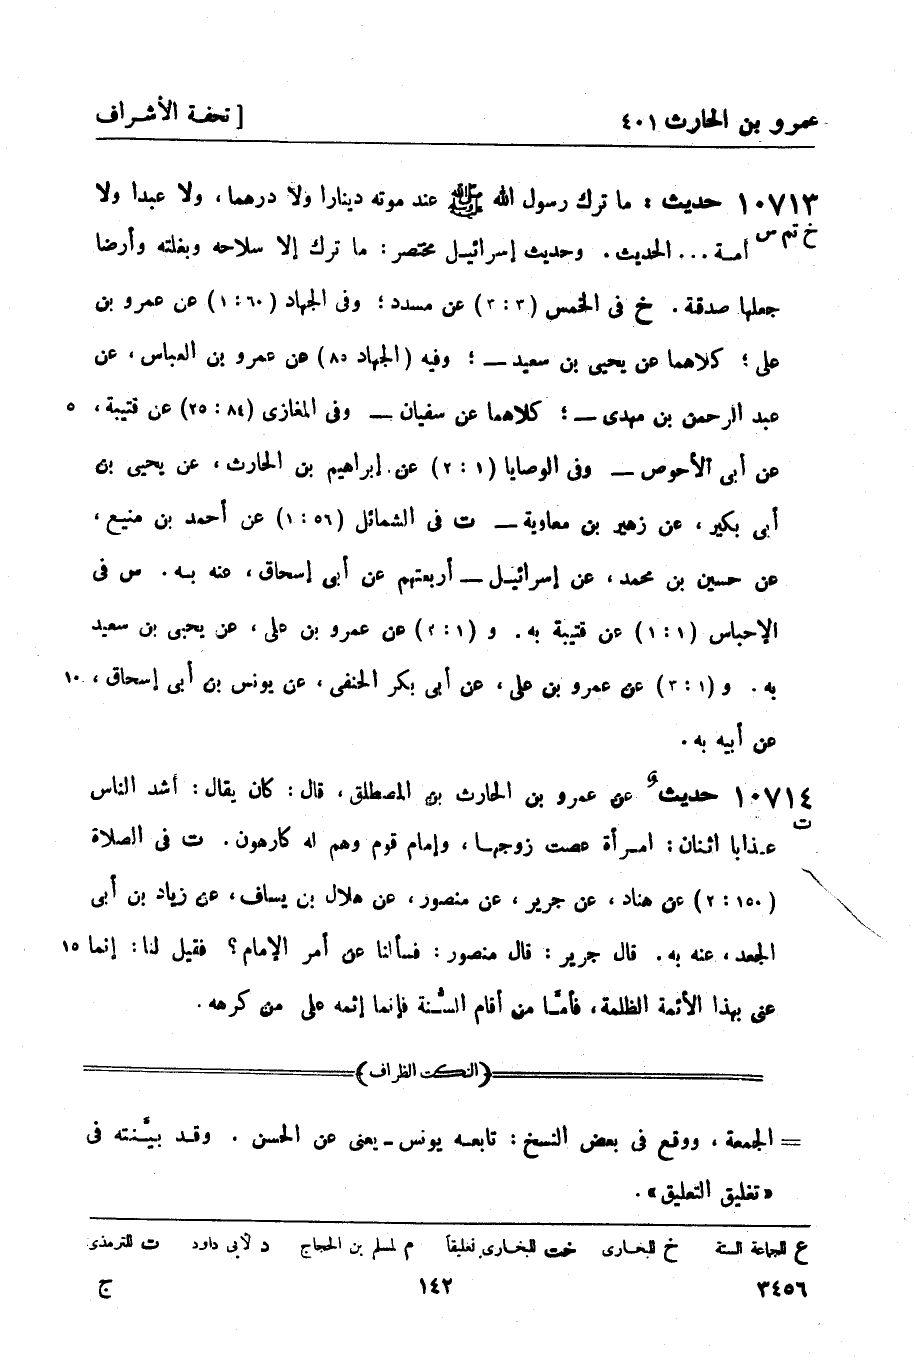 عمرو بن الحارث ٤٠١ [ تحفة الأشراف
١٠٧١٣ حديث : ما ترك رسول الله ﷺ عند موته دينارا ولا درهما ، ولا عبدا ولا
خ تم س أمة ... الحديث . وحديث إسرائيل مختصر : ما ترك إلا سلاحه وبغلته وأرضا
جعلها صدقة . خ فى الخمس (٣ : ٢) عن مسدد ؛ وفى الجهاد (٦٠ : ١) عن عمرو بن
على ؛ كلاهما عن يحيى بن سعيد ــ ؛ وفيه (الجهاد ٨٥) عن عمرو بن العباس ، عن
عبد الرحمن بن مهدى ــ ؛ كلاهما عن سفيان ــ وفى المغازى (٨٤ : ٢٥) عن قتيبة ، ٥
عن أبى الأحوص ــ وفى الوصايا (١ : ٢) عن إبراهيم بن الحارث ، عن يحيى بن
أبى بكير ، عن زهير بن معاوية ــ ت فى الشمائل (٥٦ : ١) عن أحمد بن منيع ،
عن حسين بن محمد ، عن إسرائيل ــ أربعتهم عن أبى إسحاق ، عنه به . س فى
الإحباس (١ : ١) عن قتيبة به . و (١ : ٢) عن عمرو بن على ، عن يحيى بن سعيد
به . و (١ : ٣) عن عمرو بن على ، عن أبى بكر الحنفى ، عن يونس بن أبى إسحاق ، ١٠
عن أبيه به .
١٠٧١٤ حديث عن عمرو بن الحارث بن المصطلق ، قال : كان يقال : أشد الناس
ت عذابا اثنان : امرأة عصت زوجها ، وإمام قوم وهم له كارهون . ت فى الصلاة
(١٥٠ : ٢) عن هناد ، عن جرير ، عن منصور ، عن هلال بن يساف ، عن زياد بن أبى
الجعد ، عنه به . قال جرير : قال منصور : فسألنا عن أمر الإمام ؟ فقيل لنا : إنما ١٥
عنى بهذا الأئمة الظلمة ، فأمَّا من أقام السُّنة فإنما إثمه على من كرهه .
(النكت الظراف)
= الجمعة ، ووقع فى بعض النسخ : تابعه يونس - يعنى عن الحسن . وقد بيَّنته فى
« تغليق التعليق » .
ع للجماعة الستة خ للبخارى خت للبخارى تعليقاً م لمسلم بن الحجاج د لأبى داود ت للترمذى
٣٤٥٦ ١٤٢ ج